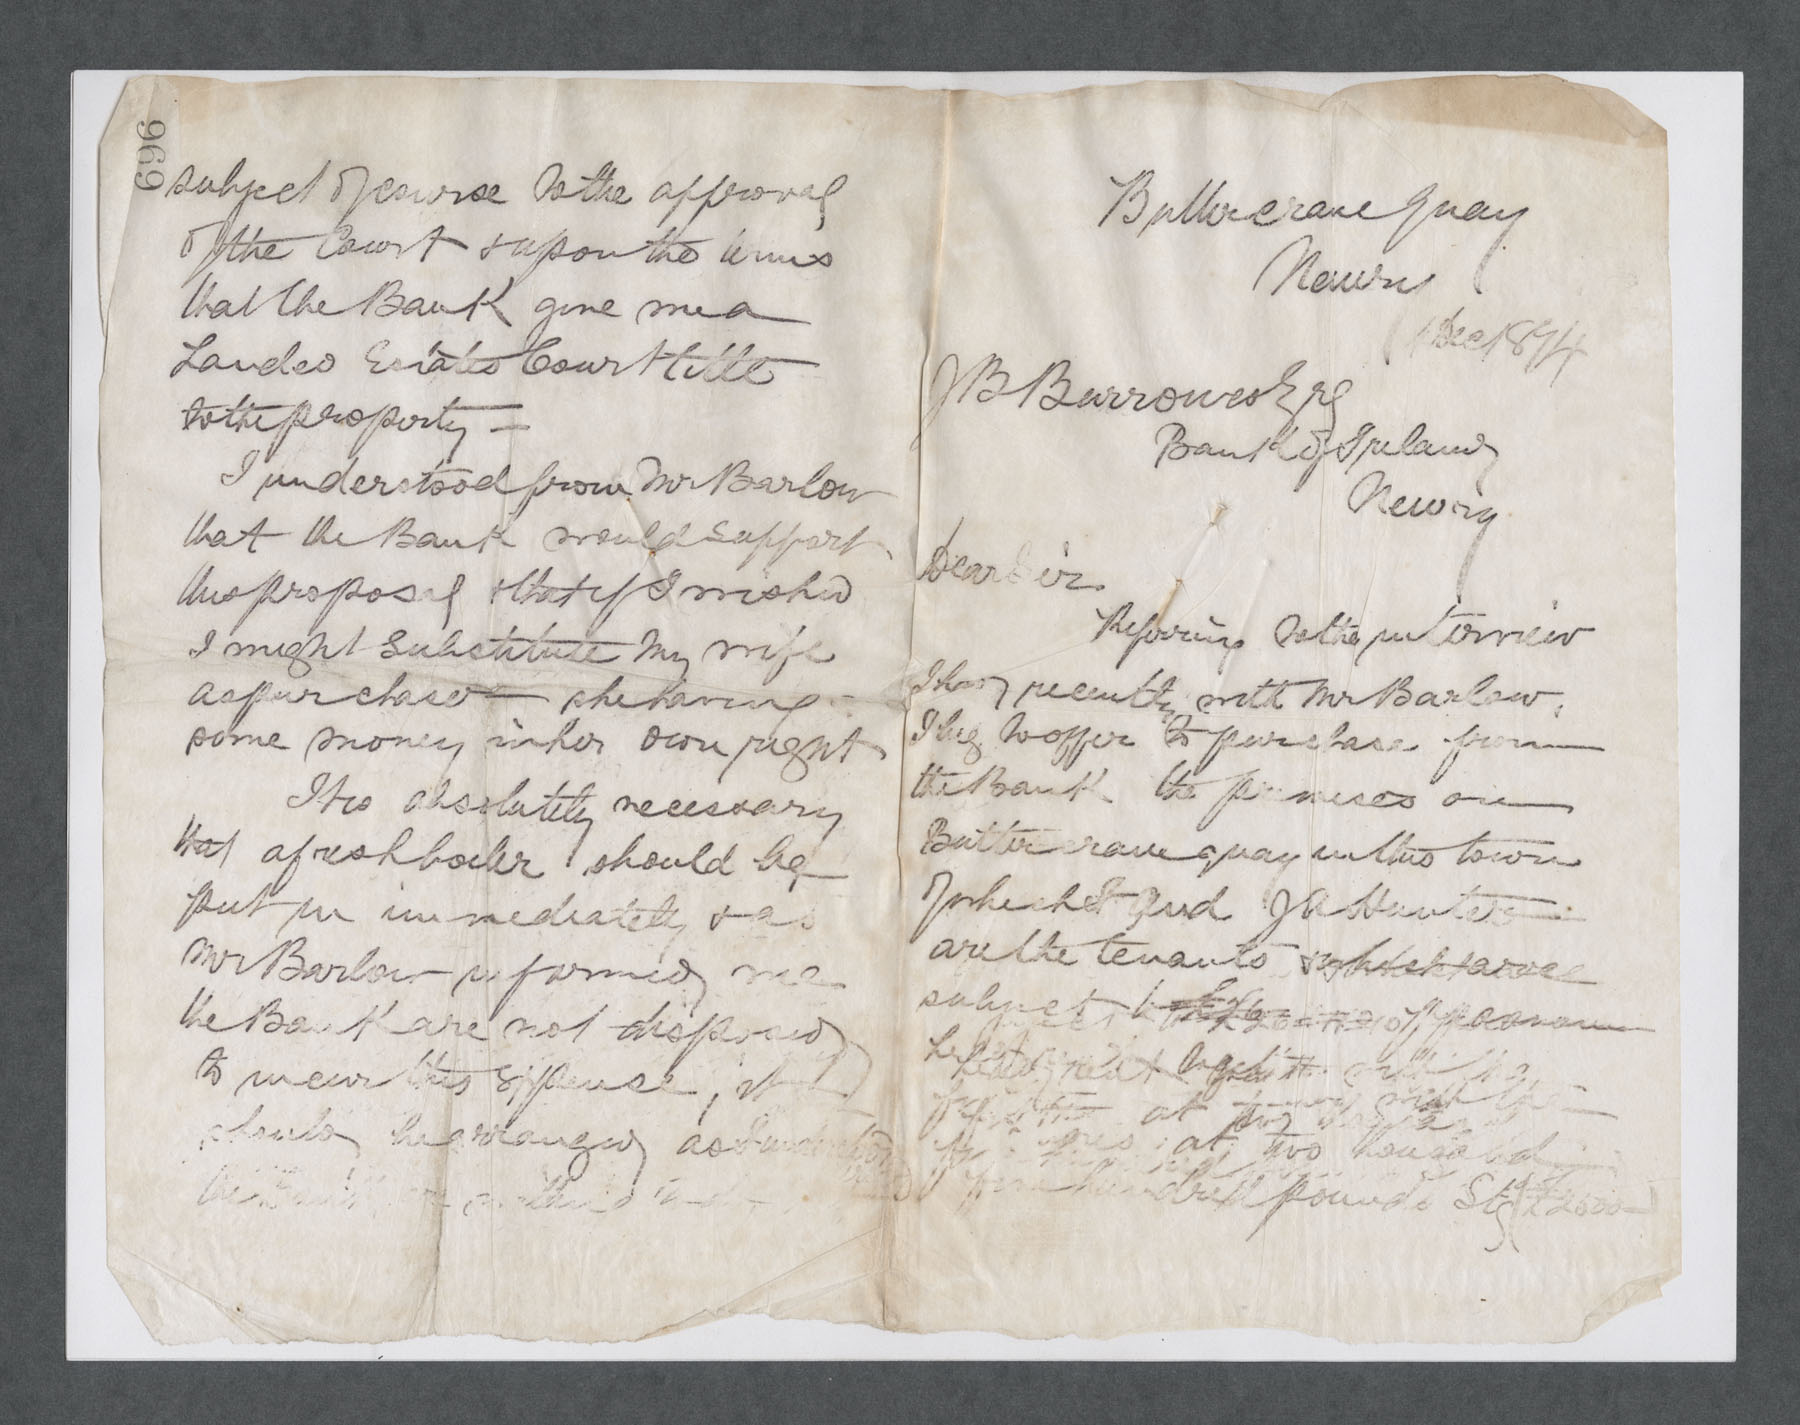 Buttercrane Quay
Newry
1 Dec 1874
J B Burrowes Esq
Bank of Ireland
Newry
Dear Sir
Referring to the interview
I had recently with Mr Barlow,
I beg to offer to purchase from
the Bank the premises on
Buttercrane quay in this town
of which J A Hunter
are the tenants
subject to
held
at
at two thousand
five hundred pounds Stg (£2500
969
subject of course to the approval
of the Court & upon the terms
that the Bank give me a
Landed Estates Court title
to the property —
I understood from Mr Barlow
that the Bank would support
this proposal & that if I wished
I might substitute my wife
as purchaser — she having
some money in her own right
It is absolutely necessary
that a fresh boiler should be
put in immediately & as
Mr Barlow informed me
the Bank are not disposed
to incur this expense, it
should be arranged as
the